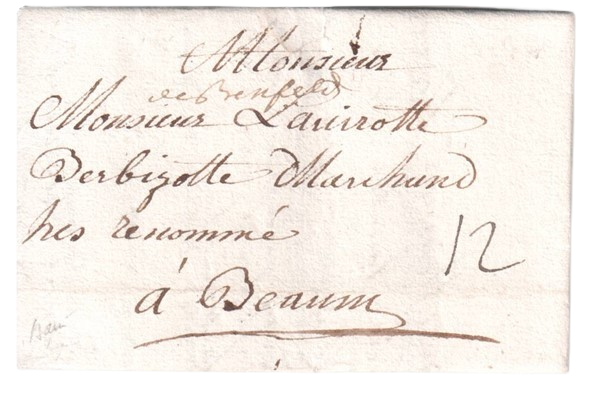 Monsieur
de Benfeld
Monsieur Lavirotte
Berbizotte Marchand
hes renommé
12
à Beaum